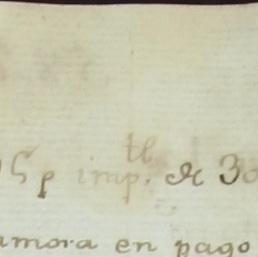 5 p imp.tl de 30
amora en pago